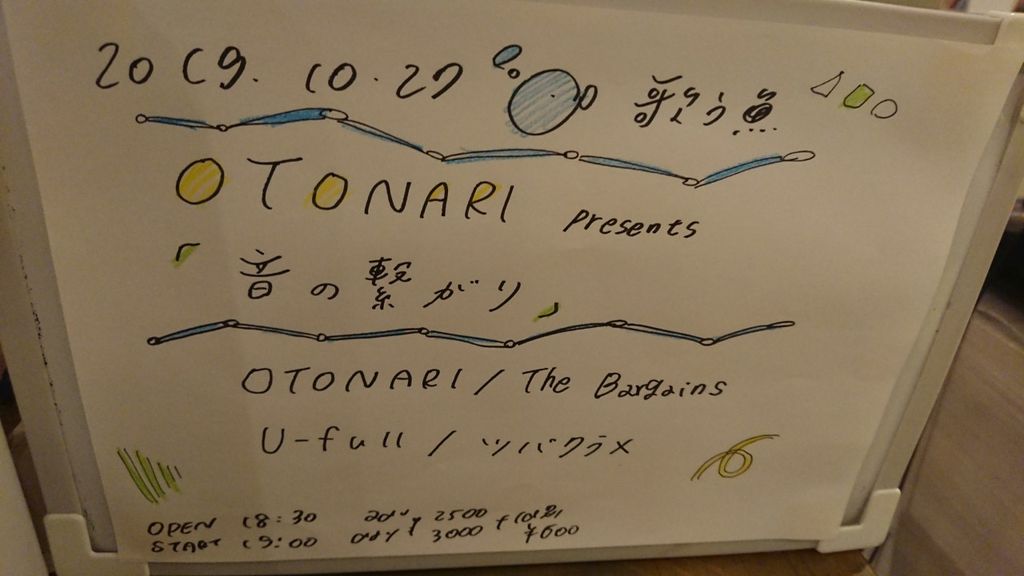 2019.10.27 歌う魚
OTONARI presents
音の繋がり
OTONARI / The Bargains
U-full / ツバクラメ
OPEN 18:30 adv ¥2500 + 1d別
START 19:00 day 3000 ¥600